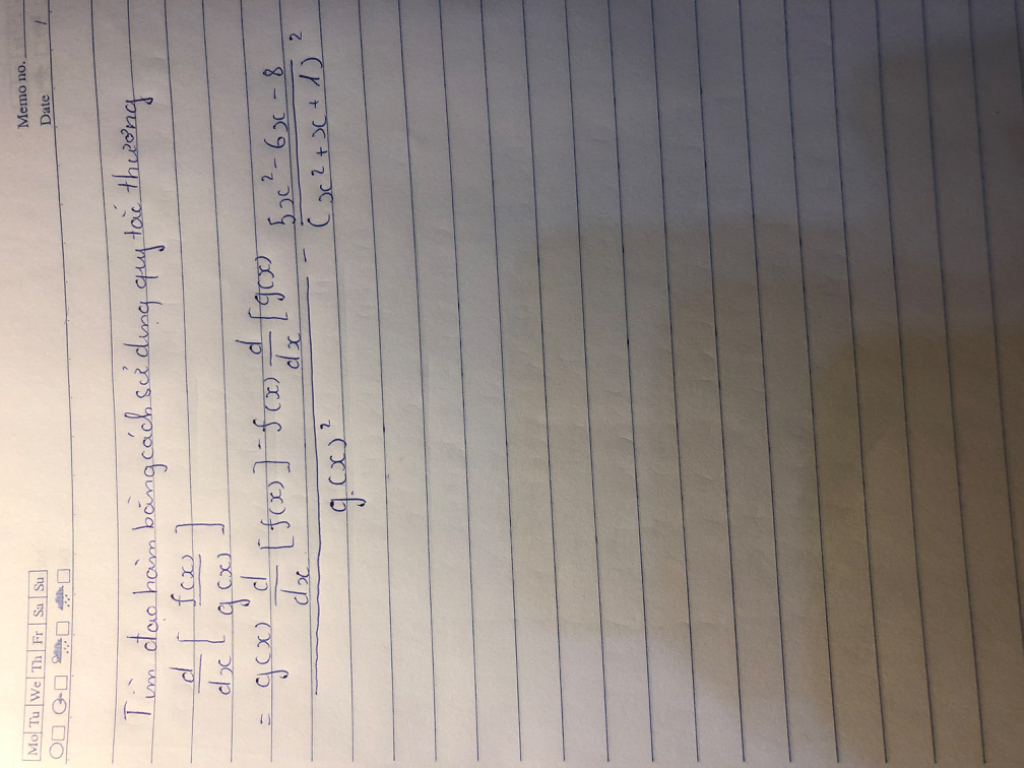 Memo no.
Mo Tu We Th Fr Sa Su
Date /
Tìm đạo hàm bằng cách sử dụng quy tắc thương
d/dx [ f(x) / g(x) ]
= ( g(x) d/dx [f(x)] - f(x) d/dx [g(x) ) / g(x)² - (5x² - 6x - 8) / (x² + x + 1)²